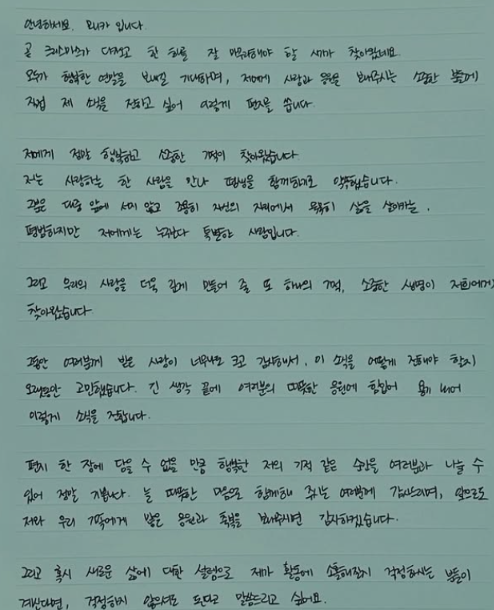 안녕하세요. 모니카 입니다.
곧 크리스마스가 다가오고 한 해를 잘 마무리해야 할 시기가 찾아왔네요.
모두가 행복한 연말을 보내실 기대하며, 저에게 사랑과 응원을 보내주시는 소중한 분들께
직접 제 소식을 전하고 싶어 이렇게 편지를 씁니다.
저에게 정말 행복하고 소중한 기적이 찾아왔습니다.
저는 사랑하는 한 사람을 만나 평생을 함께하기로 약속했습니다.
그분은 대중 앞에 서지 않고 조용히 자신의 자리에서 묵묵히 삶을 살아가는,
평범하지만 저에게는 누구보다 특별한 사람입니다.
그리고 우리의 사랑을 더욱 깊게 만들어 줄 또 하나의 기적, 소중한 생명이 저희에게
찾아왔습니다
그동안 여러분께 받은 사랑이 너무나도 크고 감사해서, 이 소식을 어떻게 전해야 할지
오랫동안 고민했습니다. 긴 생각 끝에 여러분의 따뜻한 응원에 힘입어 용기 내어
이렇게 소식을 전합니다.
편지 한 장에 담을 수 없을 만큼 행복한 저의 기적 같은 순간을 여러분과 나눌 수
있어 정말 기쁩니다. 늘 따뜻한 마음으로 함께해 주시는 여러분께 감사드리며, 앞으로도
저와 우리 가족에게 많은 응원과 축복을 보내주시면 감사하겠습니다.
그리고 혹시 새로운 삶에 대한 설렘으로 제가 활동에 소홀해질지 걱정하시는 분들이
계신다면, 걱정하지 않으셔도 된다고 말씀드리고 싶어요.